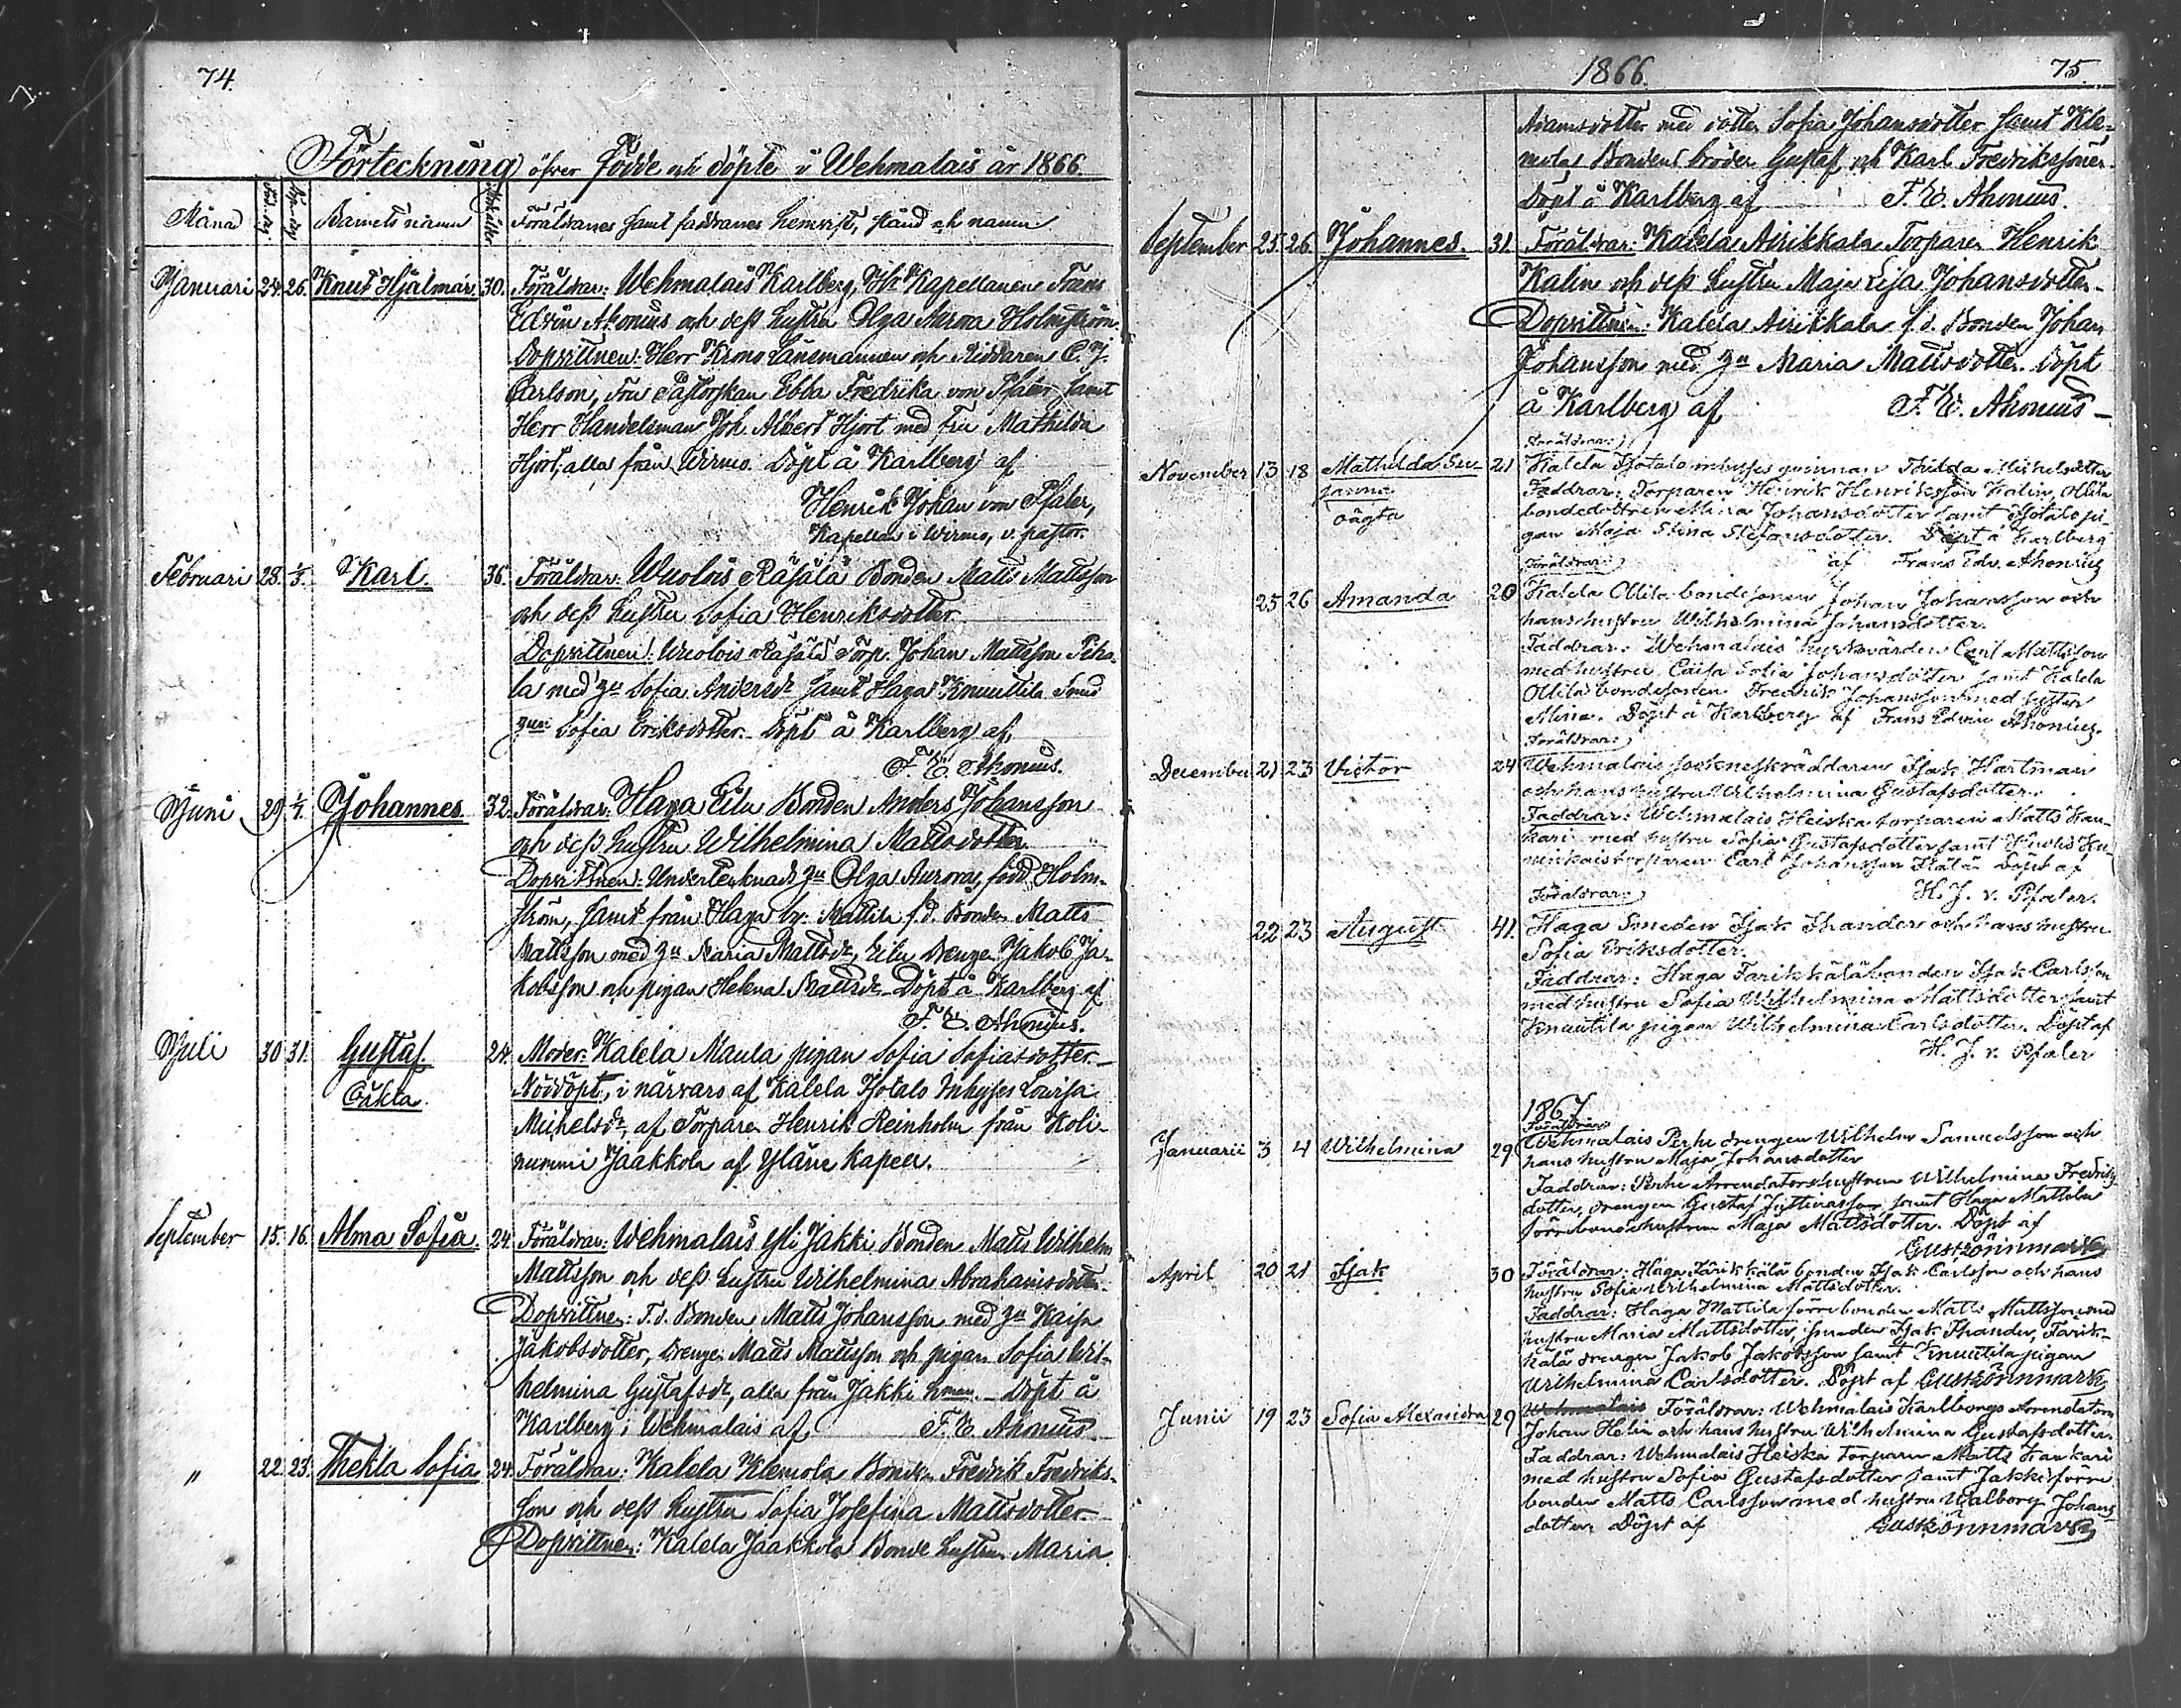 74.
Förteckning öfver födde och döpte i Wehmalais år 1866.
Månad Barnets namn Föräldrarnes samt faddrarnes hemvist, stånd och namn
Januari 24. 26. Knut Hjalmar. 30. Föräldrar: Wehmalais Karlberg, Hr Kapellanen Frans
Edvin Ahonius och dess hustru Olga Aurora Holmström.
Dopvittnen: Herr Krono Länsmannen och Riddaren C. J.
Carlson, Fru Pastorskan Ebba Fredrika von Pfaler samt
Herr Handelsman Joh. Albert Hjort med fru Mathilda
Hjort, alla från Wirmo. Döpt å Karlberg af
Henrik Johan von Pfaler,
Kapellan i Wirmo, v. pastor.
Februari 28. 1/3. Karl. 36. Föräldrar: Wuolois Räsälä Bonden Matts Mattsson
och dess hustru Sofia Henriksdotter
Dopvittnen: Wuolois Räsälä Torp. Johan Mattsson Piho-
la med hu Sofia Andersdr samt Haga Knuuttila Smed
hun Sofia Eriksdotter. Döpt å Karlberg af,
F. E. Ahonius.
Juni 29 1/7. Johannes. 32. Föräldrar: Haga Eilu Bonden Anders Johansson
och dess hustru Wilhelmina Mattsdotter
Dopvittnen: Undertecknads hu Olga Aurora, född Holm-
ström, samt från Haga by: Mattila f.d. Bonden Matts
Mattsson med hu Maria Mattsdr, Eilu Drengen Jakob Ja-
kobsson och pigan Helena Mattsdr. Döpt å Karlberg af
F. E. Ahonius.
Juli 30 31. Gustaf. 24. Moder: Kalela Maula pigan Sofia Sofiasdotter.
Oäkta. Nöddöpt, i närvaro af Kalela Isotalo Inhyses Lovisa
Michelsdr, af Torparen Henrik Reinholm från Koli-
nummi Jaakkola af Yläne Kapell.
September 15. 16. Alma Sofia. 24. Föräldrar: Wehmalais Yli Jakki Bonden Matts Wilhelm
Mattsson och dess hustru Wilhelmina Abrahamsdotter.
Dopvittnen: F.d. Bonden Matts Johansson med hu Kaisa
Jakobsdotter, Drengen Matts Mattsson och pigan Sofia Wil-
helmina Gustafsdr, alla från Jakki hman. Döpt å
Karlberg i Wehmalais af F. E. Ahonius
" 22. 23. Thekla Sofia 24. Föräldrar: Kalela Klemola Bonden Fredrik Fredriks-
son och dess hustru Sofia Josefina Mattsdotter.
Dopvittnen: Kalela Jaakkola Bonde hustrun Maria
1866. 75.
Adamsdotter med dotter Sofia Johansdotter samt Kle-
mola Bondens bröder Gustaf och Karl Fredrikssöner.
Döpt å Karlberg af F. E. Ahonius.
September 25 26 Johannes. 31. Föräldrar: Kalela Airikkala Torparen Henrik
Kalin och dess hustru Maja Lisa Johansdotter.
Dopvittnen: Kalela Airikkala f.d. Bonden Johan
Johansson med hu Maria Mattsdotter. Döpt
å Karlberg af F. E. Ahonius
Föräldrar:
November 13 18 Mathilda Su- 21 Kalela Isotalo inhyses qvinnan Thilda Michelsdotter
sanna Faddrar: Torparen Henrik Henriksson Kalin, Ollila
oägta bondedottren Mina Johansdotter samt Isotalo pi-
gan Maja Stina Stefansdotter. Döpt å Karlberg
Föräldrar: af Frans Edv. Ahonius
25 26 Amanda 20 Kalela Ollila bondesonen Johan Johansson och
hans hustru Wilhelmina Johansdotter.
Faddrar: Wehmalais kyrkovärden Carl Mattsson
med hustru Caisa Sofia Johansdotter samt Kalela
Ollila bondesonen Fredrik Johansson med syster
Mina. Döpt å Karlberg af Frans Edvin Ahonius.
Föräldrar:
December 21 23 Victor 24 Wehmalais sockneskräddaren Isak Hartman
och hans hustru Wilhelmina Gustafsdotter.
Faddrar: Wehmalais Heiska torparen Matts Kan-
kari med hustru Sofia Gustafsdotter samt
torparen Carl Johansson Döpt af
Föräldrar: H. J. v. Pfaler.
22 23 August 41. Haga Smeden Isak Thander och hans hustru
Sofia Eriksdotter.
Faddrar: Haga Tarikkälä bonden Isak Carlsson
med hustru Sofia Wilhelmina Mattsdotter samt
Knuutila pigan Wilhelmina Carlsdotter. Döpt af
H. J. v. Pfaler
1867
Föräldrar:
Januarii 3 4 Wilhelmina 29 Wehmalais Perhe drengen Wilhelm Samuelsson och
hans hustru Maja Johansdotter
Faddrar: Perhe Arrendatorshustrun Wilhelmina Fredriks
dotter, drengen Gustaf samt Haga Mattila
förre bondehustrun Maja Mattsdotter. Döpt af
Gust Rönnmark
April 20 21 Isak 30 Föräldrar: Haga Tarikkälä bonden Isak Carlsson och hans
hustru Sofia Wilhelmina Mattsdotter.
Faddrar: Haga Mattila förre bonden Matts Mattsson med
hustru Maria Mattsdotter, smeden Isak Thander, Tarik-
kälä drengen Jakob Jakobsson samt Knuutila pigan
Wilhelmina Carlsdotter. Döpt af Gust Rönnmark
Junii 19 23 Sofia Alexandra 29 Wehmalais Föräldrar: Wehmalais Karlbergs Arrendatorn
Johan Helin och hans hustru Wilhelmina Gustafsdotter.
Faddrar: Wehmalais Heiska torparen Matts Kankari
med hustru Sofia Gustafsdotter samt Jakki förre
bonden Matts Carlsson med hustru Walborg Johans-
dotter Döpt af Gust Rönnmark